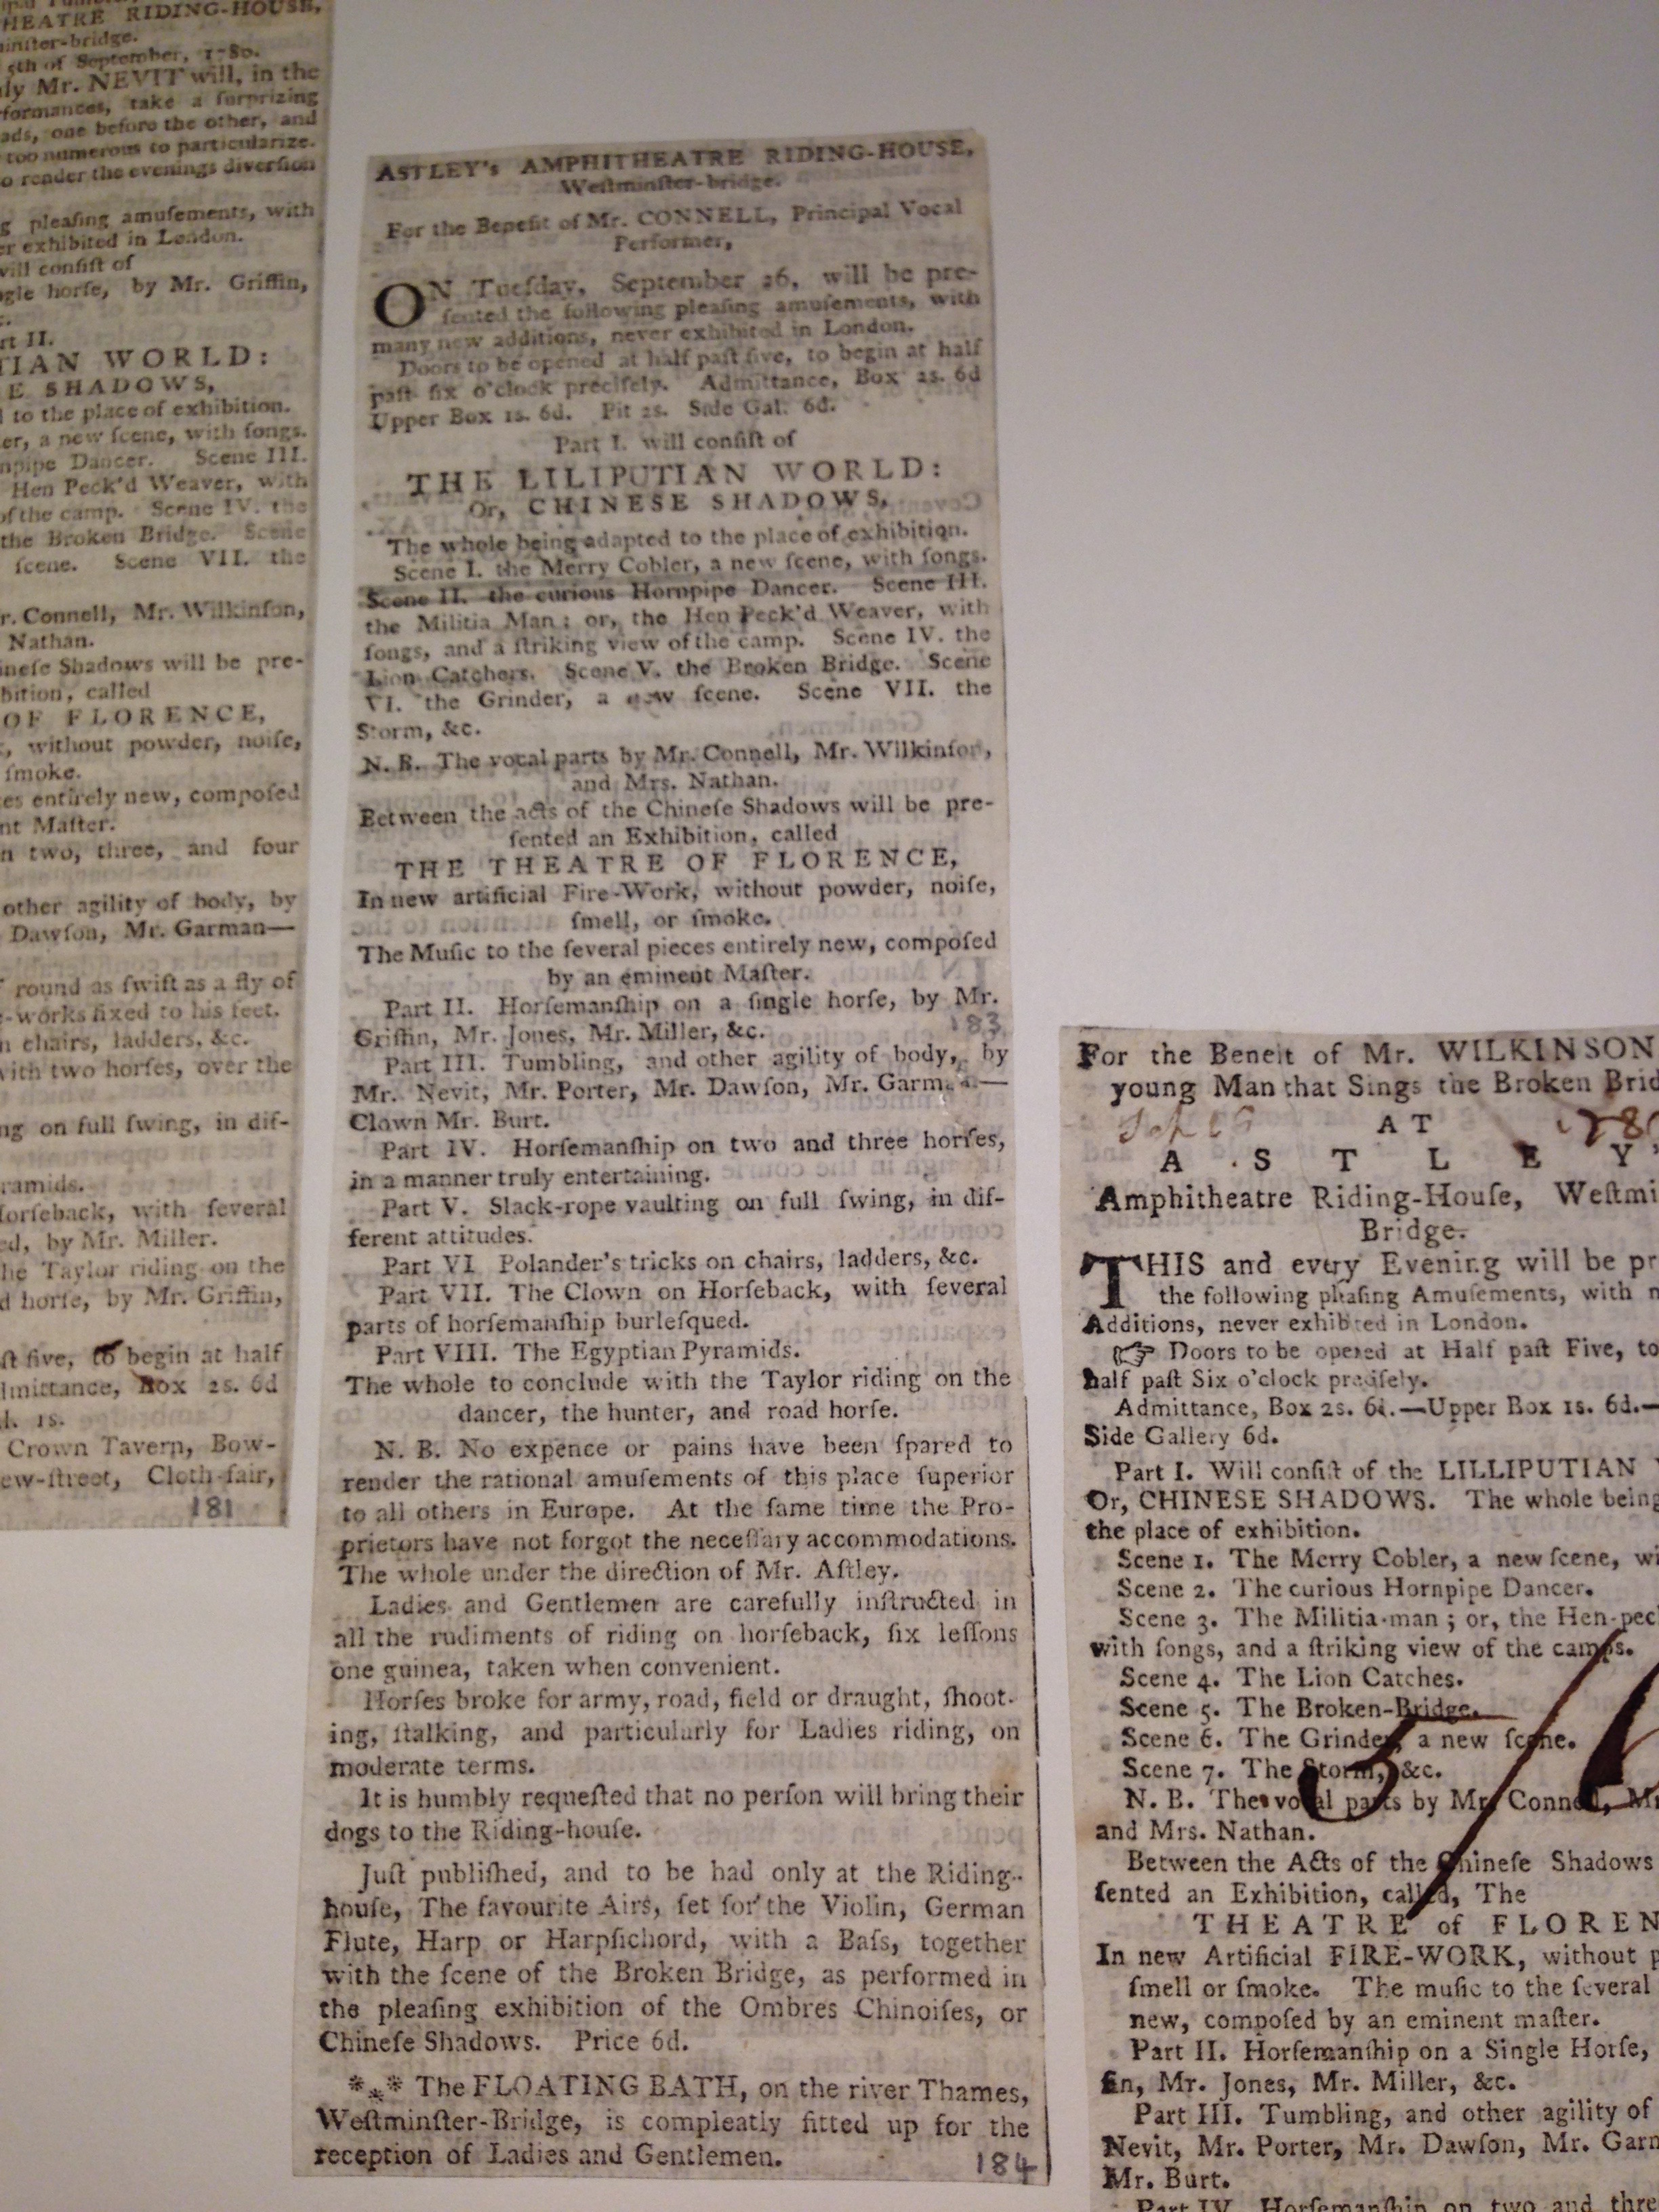 HEATRE RIDING-HOUSE,
inſter-bridge.
5th of September, 1780.
ly Mr. NEVIT will, in the
formances, take a ſurprizing
ads, one before the other, and
too numerous to particularize.
o render the evenings diverſion
g pleaſing amuſements, with
er exhibited in London.
will conſiſt of
ngle horſe, by Mr. Griffin,
rt II.
TIAN WORLD:
E SHADOWS,
d to the place of exhibition.
er, a new ſcene, with ſongs.
npipe Dancer. Scene III.
Hen Peck'd Weaver, with
of the camp. Scene IV. the
the Broken Bridge. Scene
ſcene. Scene VII. the
r. Connell, Mr. Wilkinſon,
Nathan.
ineſe Shadows will be pre-
bition, called
OF FLORENCE,
, without powder, noiſe,
ſmoke.
es entirely new, compoſed
nt Maſter.
n two, three, and four
other agility of body, by
Dawſon, Mr. Garman—
round as ſwift as a fly of
e-works fixed to his feet.
n chairs, ladders, &c.
with two horſes, over the
ng on full ſwing, in dif-
ramids.
Horſeback, with ſeveral
ed, by Mr. Miller.
he Taylor riding on the
d horſe, by Mr. Griffin,
ſt five, to begin at half
dmittance, Box 2s. 6d
l. 1s.
Crown Tavern, Bow-
ew-ſtreet, Cloth-fair,
181
ASTLEY's AMPHITHEATRE RIDING-HOUSE,
Weſtminſter-bridge.
For the Benefit of Mr. CONNELL, Principal Vocal
Performer,
ON Tueſday, September 26, will be pre-
ſented the following pleaſing amuſements, with
many new additions, never exhibited in London.
Doors to be opened at half paſt five, to begin at half
paſt ſix o'clock preciſely. Admittance, Box 2s. 6d
Upper Box 1s. 6d. Pit 2s. Side Gal. 6d.
Part I. will conſiſt of
THE LILIPUTIAN WORLD:
Or, CHINESE SHADOWS,
The whole being adapted to the place of exhibition.
Scene I. the Merry Cobler, a new ſcene, with ſongs.
Scene II. the curious Hornpipe Dancer. Scene III.
the Militia Man; or, the Hen Peck'd Weaver, with
ſongs, and a ſtriking view of the camp. Scene IV. the
Lion Catchers. Scene V. the Broken Bridge. Scene
VI. the Grinder, a new ſcene. Scene VII. the
Storm, &c.
N. B. The vocal parts by Mr. Connell, Mr. Wilkinſon,
and Mrs. Nathan.
Between the acts of the Chineſe Shadows will be pre-
ſented an Exhibition, called
THE THEATRE OF FLORENCE,
In new artificial Fire-Work, without powder, noiſe,
ſmell, or ſmoke.
The Muſic to the ſeveral pieces entirely new, compoſed
by an eminent Maſter.
Part II. Horſemanſhip on a ſingle horſe, by Mr.
Griffin, Mr. Jones, Mr. Miller, &c.
183
Part III. Tumbling, and other agility of body, by
Mr. Nevit, Mr. Porter, Mr. Dawſon, Mr. Garman—
Clown Mr. Burt.
Part IV. Horſemanſhip on two and three horſes,
in a manner truly entertaining.
Part V. Slack-rope vaulting on full ſwing, in dif-
ferent attitudes.
Part VI Polander's tricks on chairs, ladders, &c.
Part VII. The Clown on Horſeback, with ſeveral
parts of horſemanſhip burleſqued.
Part VIII. The Egyptian Pyramids.
The whole to conclude with the Taylor riding on the
dancer, the hunter, and road horſe.
N. B. No expence or pains have been ſpared to
render the rational amuſements of this place ſuperior
to all others in Europe. At the ſame time the Pro-
prietors have not forgot the neceſſary accommodations.
The whole under the direction of Mr. Aſtley.
Ladies and Gentlemen are carefully inſtructed in
all the rudiments of riding on horſeback, ſix leſſons
one guinea, taken when convenient.
Horſes broke for army, road, field or draught, ſhoot-
ing, ſtalking, and particularly for Ladies riding, on
moderate terms.
It is humbly requeſted that no perſon will bring their
dogs to the Riding-houſe.
Juſt publiſhed, and to be had only at the Riding-
houſe, The favourite Airs, ſet for the Violin, German
Flute, Harp or Harpſichord, with a Baſs, together
with the ſcene of the Broken Bridge, as performed in
the pleaſing exhibition of the Ombres Chinoiſes, or
Chineſe Shadows. Price 6d.
*⁎* The FLOATING BATH, on the river Thames,
Weſtminſter-Bridge, is compleatly fitted up for the
reception of Ladies and Gentlemen.
184
For the Benefit of Mr. WILKINSON
young Man that Sings the Broken Brid
AT
A S T L E Y '
Amphitheatre Riding-Houſe, Weſtmi
Bridge.
THIS and every Evening will be pr
the following pleaſing Amuſements, with n
Additions, never exhibited in London.
☞ Doors to be opened at Half paſt Five, to
half paſt Six o'clock preciſely.
Admittance, Box 2s. 6d.—Upper Box 1s. 6d.—
Side Gallery 6d.
Part I. Will conſiſt of the LILLIPUTIAN
Or, CHINESE SHADOWS. The whole being
the place of exhibition.
Scene 1. The Merry Cobler, a new ſcene, wi
Scene 2. The curious Hornpipe Dancer.
Scene 3. The Militia-man; or, the Hen-pec
with ſongs, and a ſtriking view of the camps.
Scene 4. The Lion Catches.
Scene 5. The Broken-Bridge.
Scene 6. The Grinder, a new ſcene.
Scene 7. The Storm, &c.
N. B. The vocal parts by Mr. Connell, Mr
and Mrs. Nathan.
Between the Acts of the Chineſe Shadows
ſented an Exhibition, called, The
THEATRE of FLOREN
In new Artificial FIRE-WORK, without p
ſmell or ſmoke. The muſic to the ſeveral
new, compoſed by an eminent maſter.
Part II. Horſemanſhip on a Single Horſe,
fin, Mr. Jones, Mr. Miller, &c.
Part III. Tumbling, and other agility of
Nevit, Mr. Porter, Mr. Dawſon, Mr. Garm
Mr. Burt.
Part IV. Horſemanſhip on two and thre